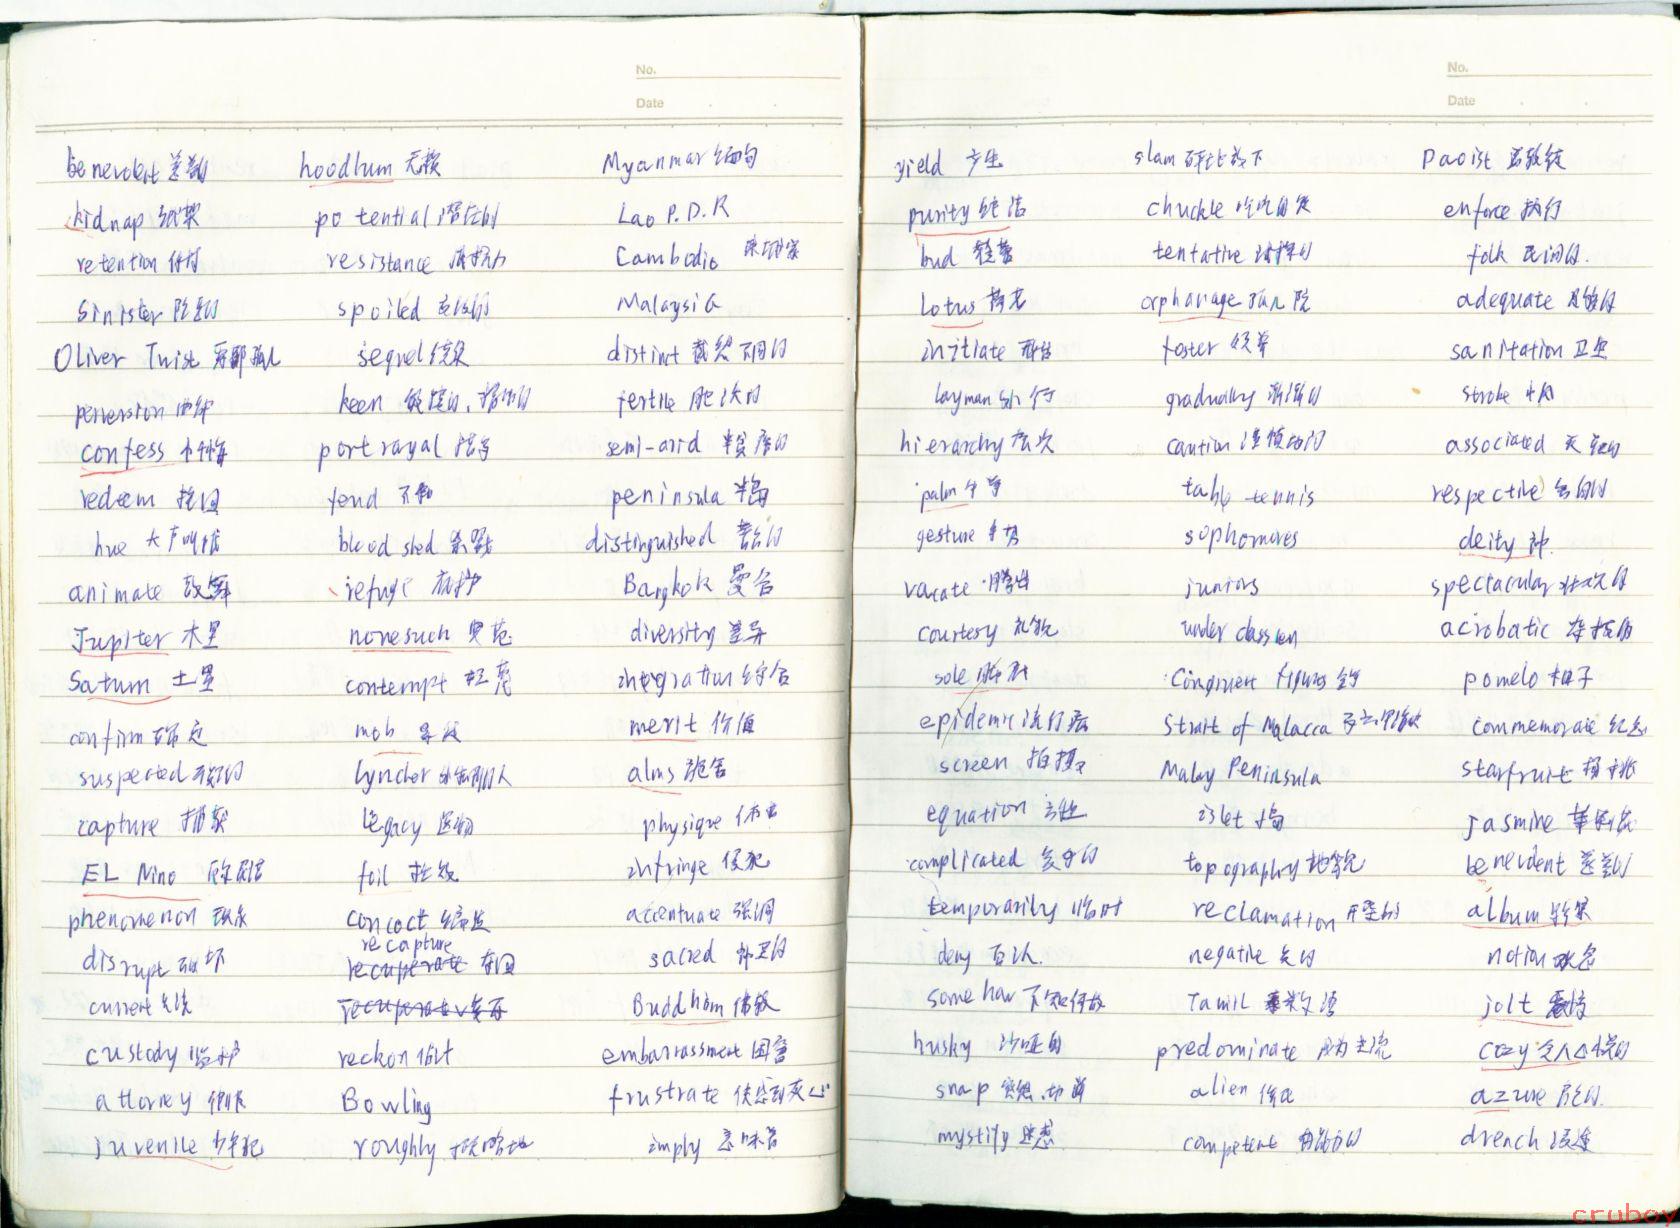 No.
Date
benevolent 善
hoodlum 无赖
Myanmar 缅甸
kidnap 绑架
potential 潜在的
Lao P.D.R
retention
resistance 抵抗力
Cambodia 柬埔寨
Sinister 险恶的
spoiled
Malaysia
Oliver Twist 雾都孤儿
sequel 续集
distinct 截然不同的
perversion 曲解
keen 敏锐的.
fertile 肥沃的
confess 忏悔
portrayal 描写
semi-arid 半贫瘠的
redeem 挽回
feud 不和
peninsula 半岛
hue 大声叫喊
bloodshed 杀戮
distinguished 著名的
animate 鼓舞
refuge 庇护
Bangkok 曼谷
Jupiter 木星
nonesuch 典范
diversity 差异
Saturn 土星
contempt 轻蔑
integration 综合
confirm 确定
mob 暴民
merit 价值
suspected 可疑的
lyncher
alms 施舍
capture 捕获
legacy 遗物
physique 体格
EL Nino 厄尔尼诺
foil 挫败
infringe 侵犯
phenomenon 现象
concoct 编造
accentuate 强调
disrupt 破坏
recapture
recuperate 夺回
sacred 神圣的
current
recuperate 复原
Buddhism 佛教
custody 监护
reckon 估计
embarrassment 困窘
attorney 律师
Bowling
frustrate 使感到灰心
juvenile 少年犯
roughly 大概地
imply 意味着
No.
Date
yield 产生
slam 砰地放下
Daoist 道教徒
purity 纯洁
chuckle 吃吃的笑
enforce 执行
bud 花蕾
tentative 试探的
folk 民间的.
Lotus 荷花
orphanage 孤儿院
adequate 足够的
initiate 开始
foster 领养
sanitation 卫生
layman 外行
gradually 渐渐的
stroke 中风
hierarchy 层次
caution 谨慎
associated 关联的
palm 手掌
table tennis
respective 各自的
gesture 手势
sophomores
deity 神.
vacate 腾出
juniors
spectacular 壮观的
courtesy 礼貌
under classmen
acrobatic 杂技的
sole 脚底
Congruent figures
pomelo 柚子
epidemic 流行病
Strait of Malacca 马六甲海峡
commemorate 纪念
screen 拍摄
Malay Peninsula
starfruit 杨桃
equation 方程
islet 小岛
jasmine 茉莉花
complicated 复杂的
topography 地貌
benevolent 慈善的
temporarily 临时
reclamation 开垦的
album 影集
deny 否认.
negative 负的
notion 概念
somehow 不知何故
Tamil 泰米尔语
jolt 震惊
husky 沙哑的
predominate 成为主流
cozy 令人心悦的
snap 突然.切断
alien 侨民
azure 天蓝的.
mystify 迷惑
competent 有能力的
drench 浸透
cruboy